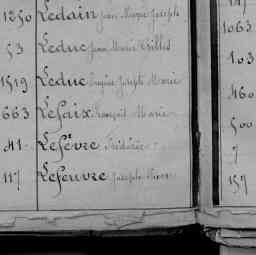 1250 Ledain Jean Marie Joseph
53 Leduc Jean Marie Gilles
1519 Leduc Eugène Joseph Marie
663 Lefaix François Marie
41 Lefèvre Frédéric
117 Lefeuvre Joseph Pierre
147
1063
103
460
500
7
157